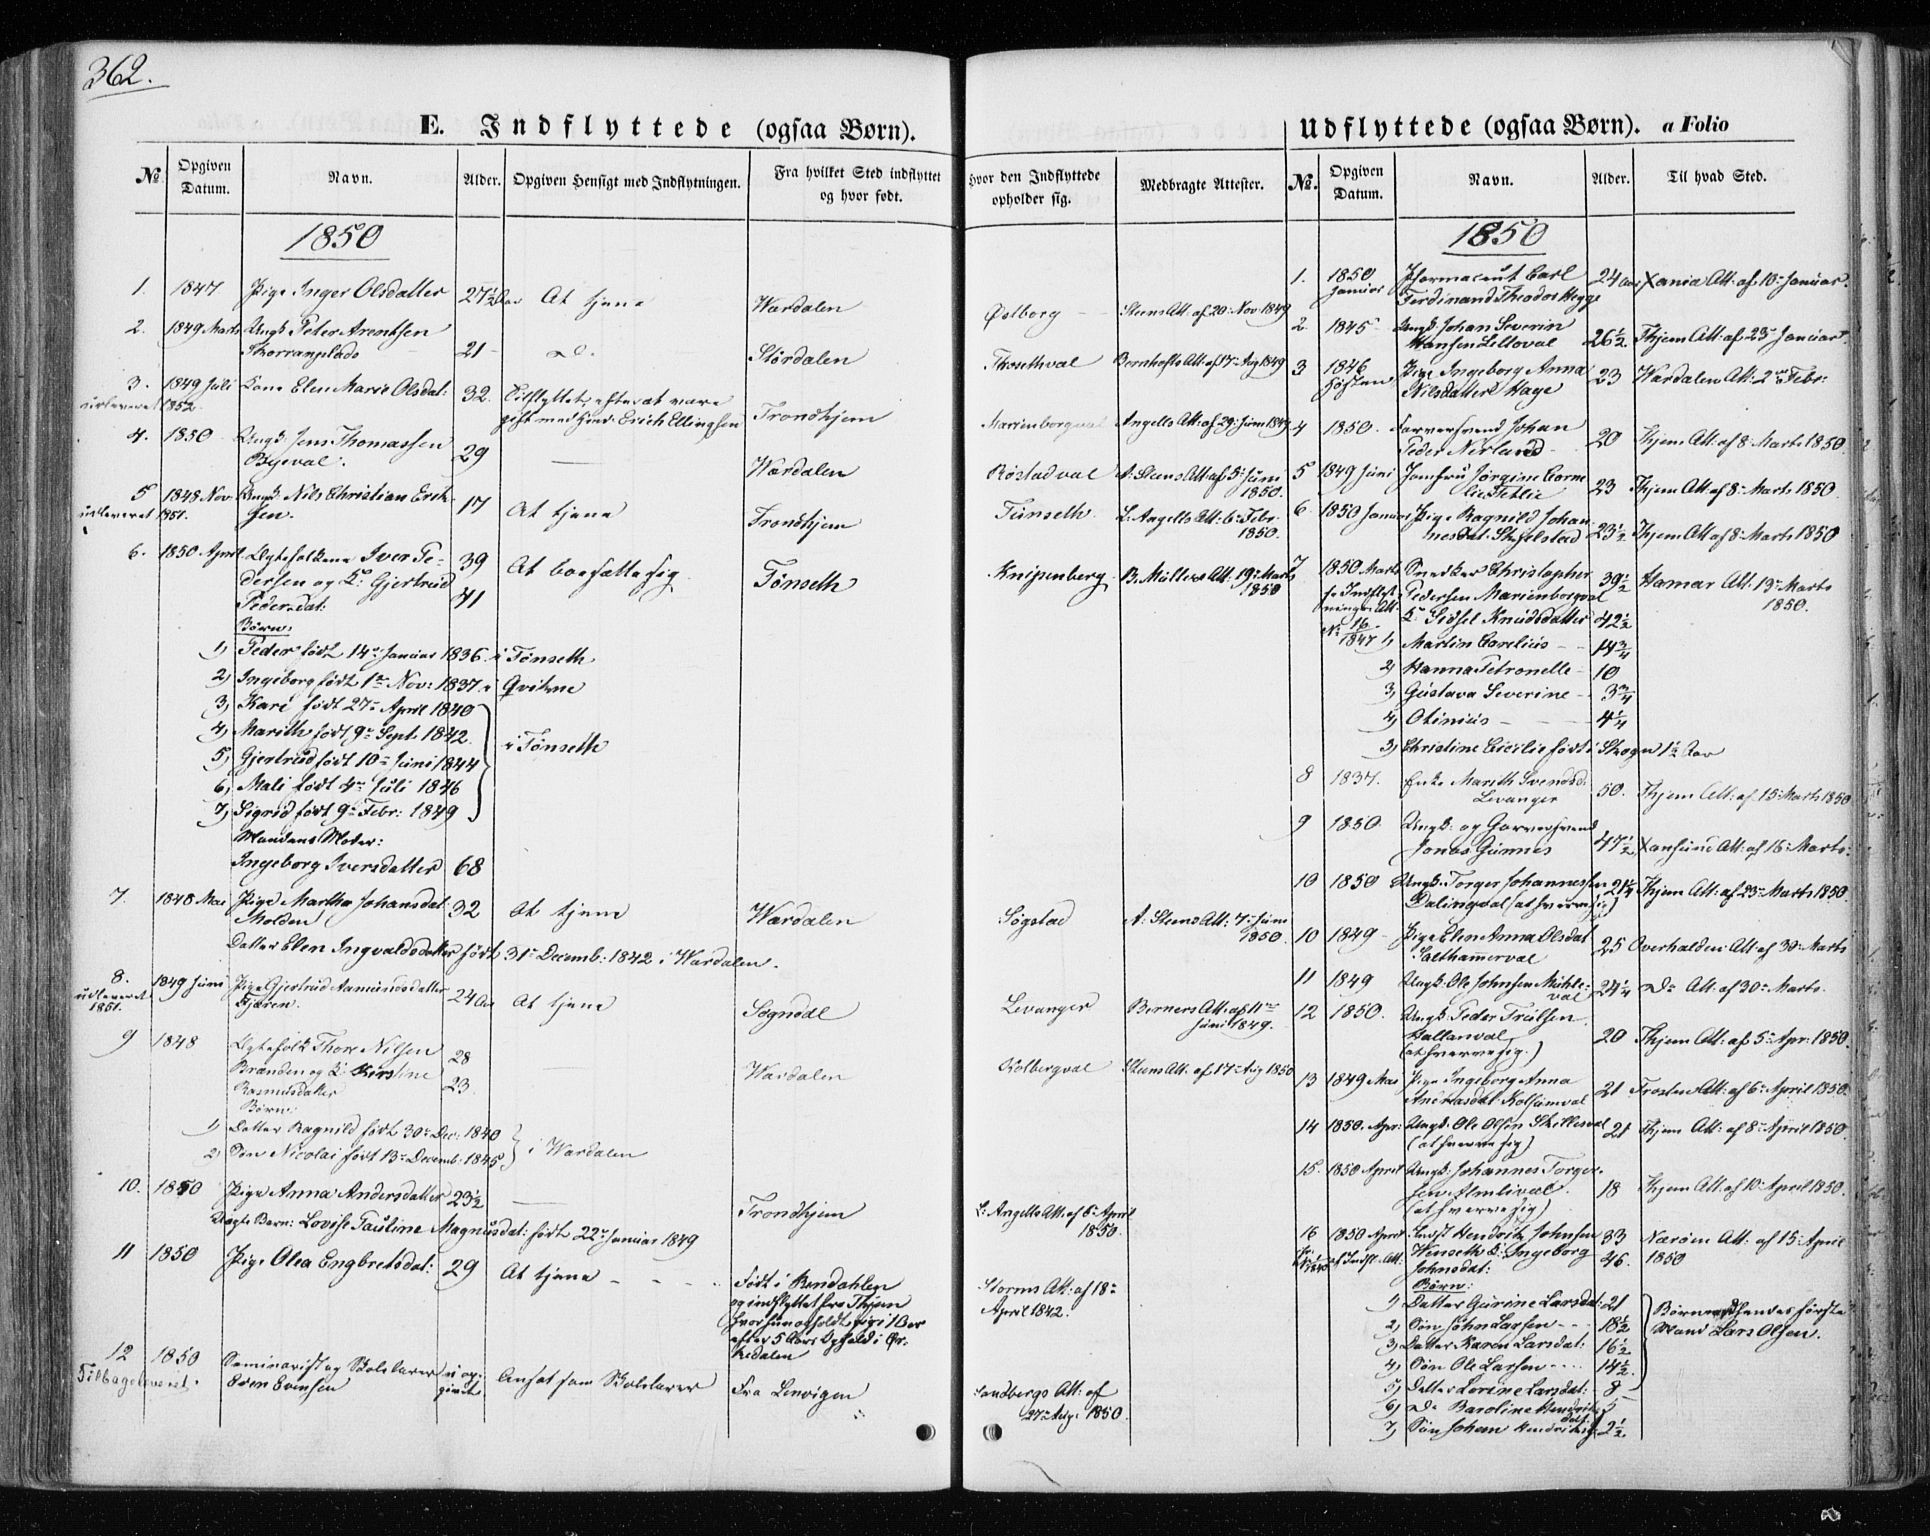 362.
E. Indflyttede (ogsaa Børn).
№ Opgiven Datum. Navn. Alder. Opgiven Hensigt med Indflytningen. Fra hvilket Sted indflyttet og hvor født. Hvor den Indflyttede opholder sig. Medbragte Attester.
1850
1. 1847 Pige Inger Olsdatter 27½ Aar At tjene Wærdalen Østborg Steens Att. af 20. Nov 1849
2. 1849 Marts Ungk. Peter Arentsen 21 Do. Størdalen Thosethval Bernhofts Att. af 17. Aug 1849
3. 1849 Juli Kone Elen Marie Olsdat: 32. Tilflyttet efter at være
udleveret 1852. gift med Erich Ellingsen Trondhjem Marienborgval Angells Att: af 29. Juni 1849
4. 1850 Ungk. Jens Thomassen
Byeval. 29 Wærdalen Røstadval A. Steens Att. af 5. Juni 1850.
5 1848 Nov Ungk. Nils Christian Erik-
udleveret 1851. sen. 17 At tjene Trondhjem Tünseth. L. Angells Att: 6. Febr. 1850.
6. 1850 April Ægtefolkene Iver Pe- 39
dersen og K. Gjertrud At bosætte sig. Tønseth Knipenberg B. Müllers Att: 19. Marts 1850
Peder-dat: 41
Børn:
1) Peder født 14. Januar 1836. i Tønseth
2) Ingeborg født 1. Nov: 1837. i Qvikne
3) Kari født 27. April 1840
4) Marith født 9. Sept. 1842. i Tønseth
5) Gjertrud født 10. Juni 1844
6) Mali født 4. Juli 1846
7) Sigrid født 9. Febr: 1849
Mandens Moder:
Ingeborg Iversdatter 68
7. 1848 Mai Pige Martha Johansdat 32 At tjene Wærdalen Søgstad A: Steens Att: 7. Juni 1850.
Molden
Datter Elen Ingvaldsdatter født 31. Decemb: 1842 i Wærdalen.
8. 1849 Juni Pige Gjertrud Aamundsdatter 24 Aar At tjene Sognedl Levanger Berners Att. af 11te Juni 1849.
udleveret 1851. Fjæren.
9 1848 Ægtefolk Thore Nilsen 28
Brænden og K. Kirstine 23. Wærdalen Kolbergval Steens Att. af 17. Aug 1850
Rasmusdatter
Børn:
1) Datter Ragnild født 30. Dec: 1840
2) Søn Nicolai født 13. Decemb. 1845 i Wærdalen
10. 1850 Pige Anna Andersdatter 23½ Trondhjem L. Angells Att. af 6. April 1850.
Uægte Barn: Lovise Pauline Magnusdat: født 22. Januar 1849
11 1850 Pige Olea Engbretsdat: 29 At tjene Født i Rendahlen Storms Att: af 18. April 1842.
og indflyttet fra Thjem
hvor hun opholdt sig i 1 Aar
efter 5 Aars Ophold i Ør-
kedalen
12 1850 Seminarist og Skolelærer uop- Ansat som Skolelærer Fra Lenvigen Sandbergs Att: af 27. Aug. 1850.
Tilbageleveret. Even Evensen givet
Udflyttede (ogsaa Børn). a Folio
№. Opgiven Datum. Navn. Alder. Til hvad Sted.
1850
1. 1850 Januar Pharmaceut Carl 24 Aar Xania Att: af 10. Januar.
Ferdinand Theodor Hegge
2. 1845 Ungk. Johan Severin
Hansen 26½ Thjem Att: af 23. Januar.
3 1846 Høsten Pige Ingeborg Anna
Nilsdatter Hage 23 Wærdalen Att: 2. Febr:
4 1850. Farversvend Johan
Peder Nerland 20 Thjem Att: af 8. Marts 1850.
5 1849 Juni Jomfru Jørgine Corne
lie Petlie 23 Thjem Att: af 8. Marts 1850.
6. 1850 Januar Pige Ragnild Johan-
nesdat. 23½ Thjem Att: af 8. Marts 1850
7 1850 Marts Snedker Christopher 39½ Hamar Att. 13. Marts 1850.
Pedersen Marienborgval
f. Indflyt-ningen Att. № 16/1847 K. Sidsel Knudsdatter 42½
1) Martin Cornelius 14¾
2) Hanna Petronelle 10
3) Gustava Severine 3¾
4) Otinius 4¼
3) Christine Cicilie født i Skogn 1½ Aar
8 1837. Enke Marith Svendsd: 50. Thjem Att: af 15. Marts 1850
Levanger
9 1850. Ungk: og Garversvend
Jonas Gunnes 47½ Xansund Att: af 16. Marts:
10 1850 Ungk: Torger Johannessen 21¼ Thjem Att: af 23. Marts 1850.
Dalingval (at hverve sig)
10 1849 Pige Elen Anna Olsdat
Salthammerval 25 Overhalden Att: af 30. Marts
11 1849 Ungk. Ole Johnsen Mühle-
val 24¼ Do Att: af 30. Marts.
12 1850. Ungk. Peder Trulsen
Hallanval 20 Thjem Att. af 5. Apr: 1850.
(at hverve sig.)
13 1849 Mai Pige Ingeborg Anna
Andreasdat: 21 Frosten Att: af 6. April 1850.
14 1850. Apr: Ungk. Ole Olsen 21 Thjem Att: af 8. April 1850.
(at hverve sig)
15. 1850 April Ungk: Johannes Torger-
sen Almlival. 18 Thjem Att: af 10. April 1850.
(at hverve sig)
16 1850 April Indst Hendrik Johnsen 33 Nærøen Att: af 15. April 1850
af Indfl. Att: Winseth K. Ingeborg 46.
Johnsdat:
Børn:
1) Datter Gurine Larsdat: 21 Børn med hendes første
2) Søn John Larsen 18½ Mand Lars Olsen.
3) Datter Karen Larsdat: 16½
4) Søn Ole Larsen 14½
5) Datter Lorine Larsdat: 8
6) Do Baroline Hendriks dat: 5
7) Søn Johan Hendriksen 2½